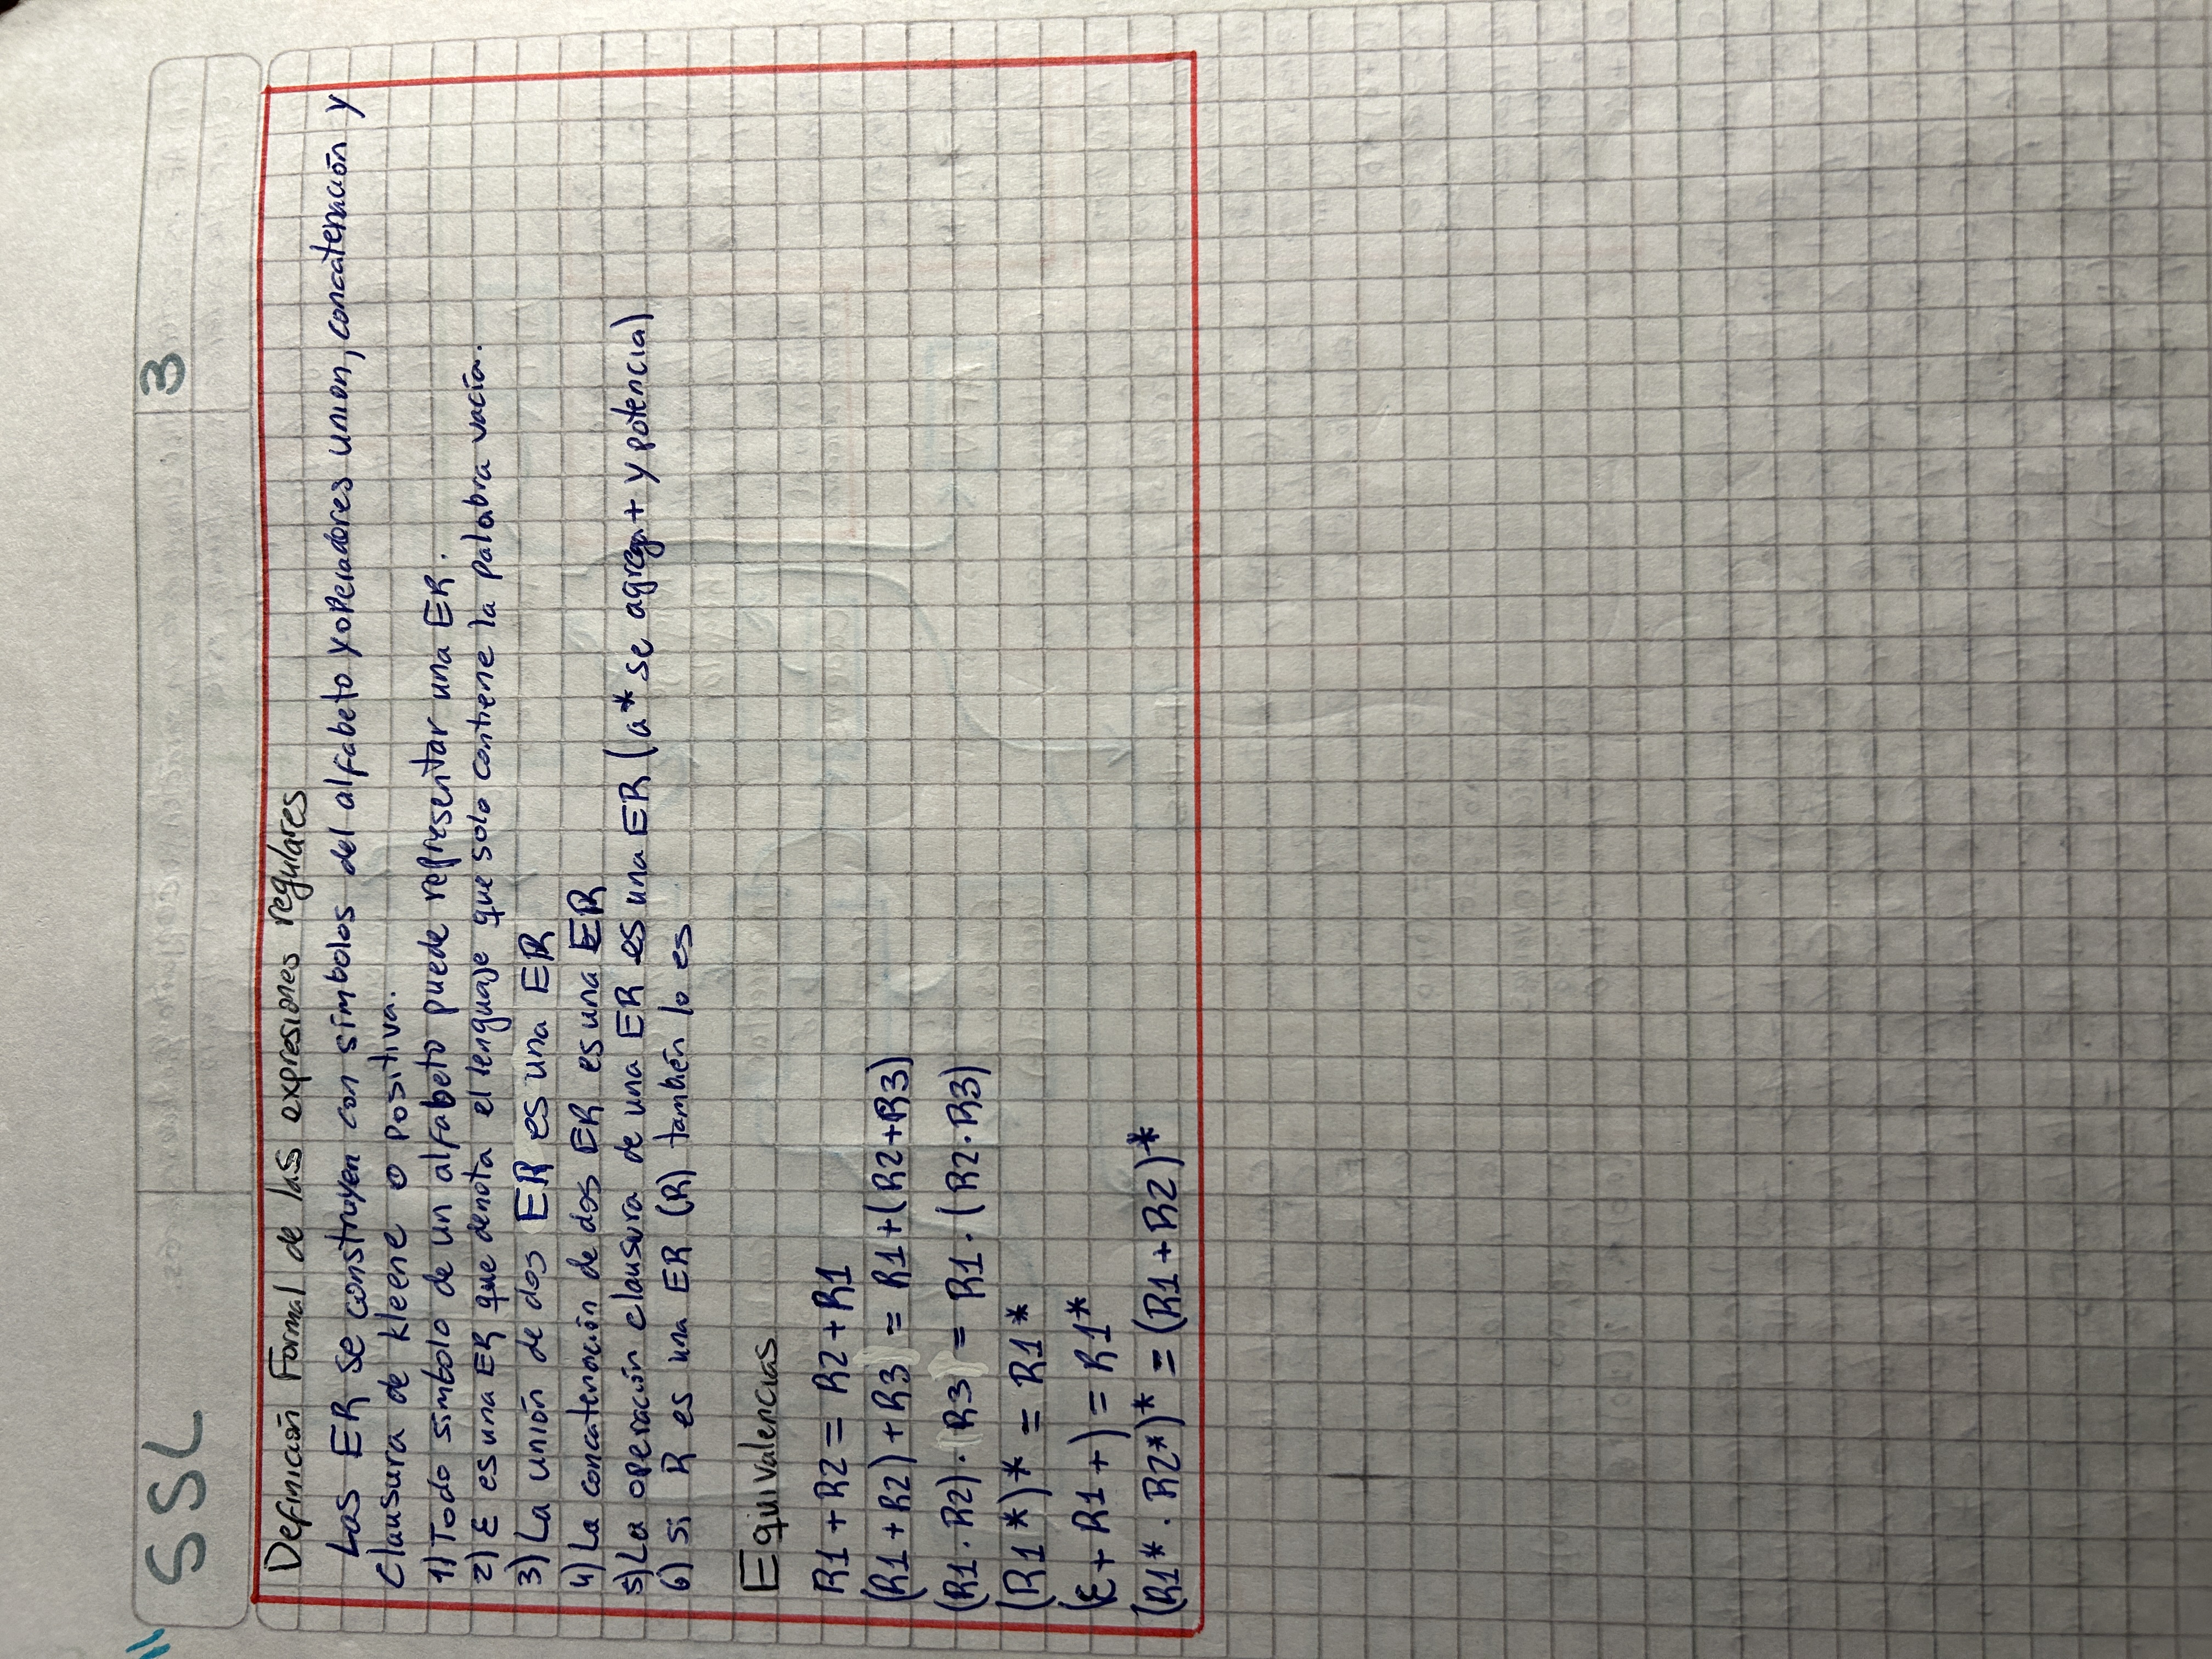 SSL
3
Definición Formal de las expresiones regulares
Las ER se construyen con símbolos del alfabeto y operadores unión, concatenación y
Clausura de kleene o positiva.
1) Todo símbolo de un alfabeto puede representar una ER.
2) ε es una ER que denota el lenguaje que solo contiene la palabra vacía.
3) La unión de dos ER es una ER
4) La concatenación de dos ER es una ER
5) La operación clausura de una ER es una ER (a* se agrega + y potencia)
6) Si R es una ER (R) también lo es
Equivalencias
R1 + R2 = R2 + R1
(R1 + R2) + R3 = R1 + (R2 + R3)
(R1 . R2) . R3 = R1 . (R2 . R3)
(R1*)* = R1*
(ε + R1+) = R1*
(R1* . R2*)* = (R1 + R2)*